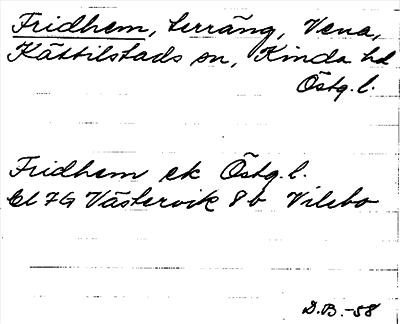 Fridhem, terräng, Vena,
Kättilstads sn, Kinda hd
Östg. l.
Fridhem ek Östg. l.
Bl 7G Västervik 8b Vilebo
D.B.-58